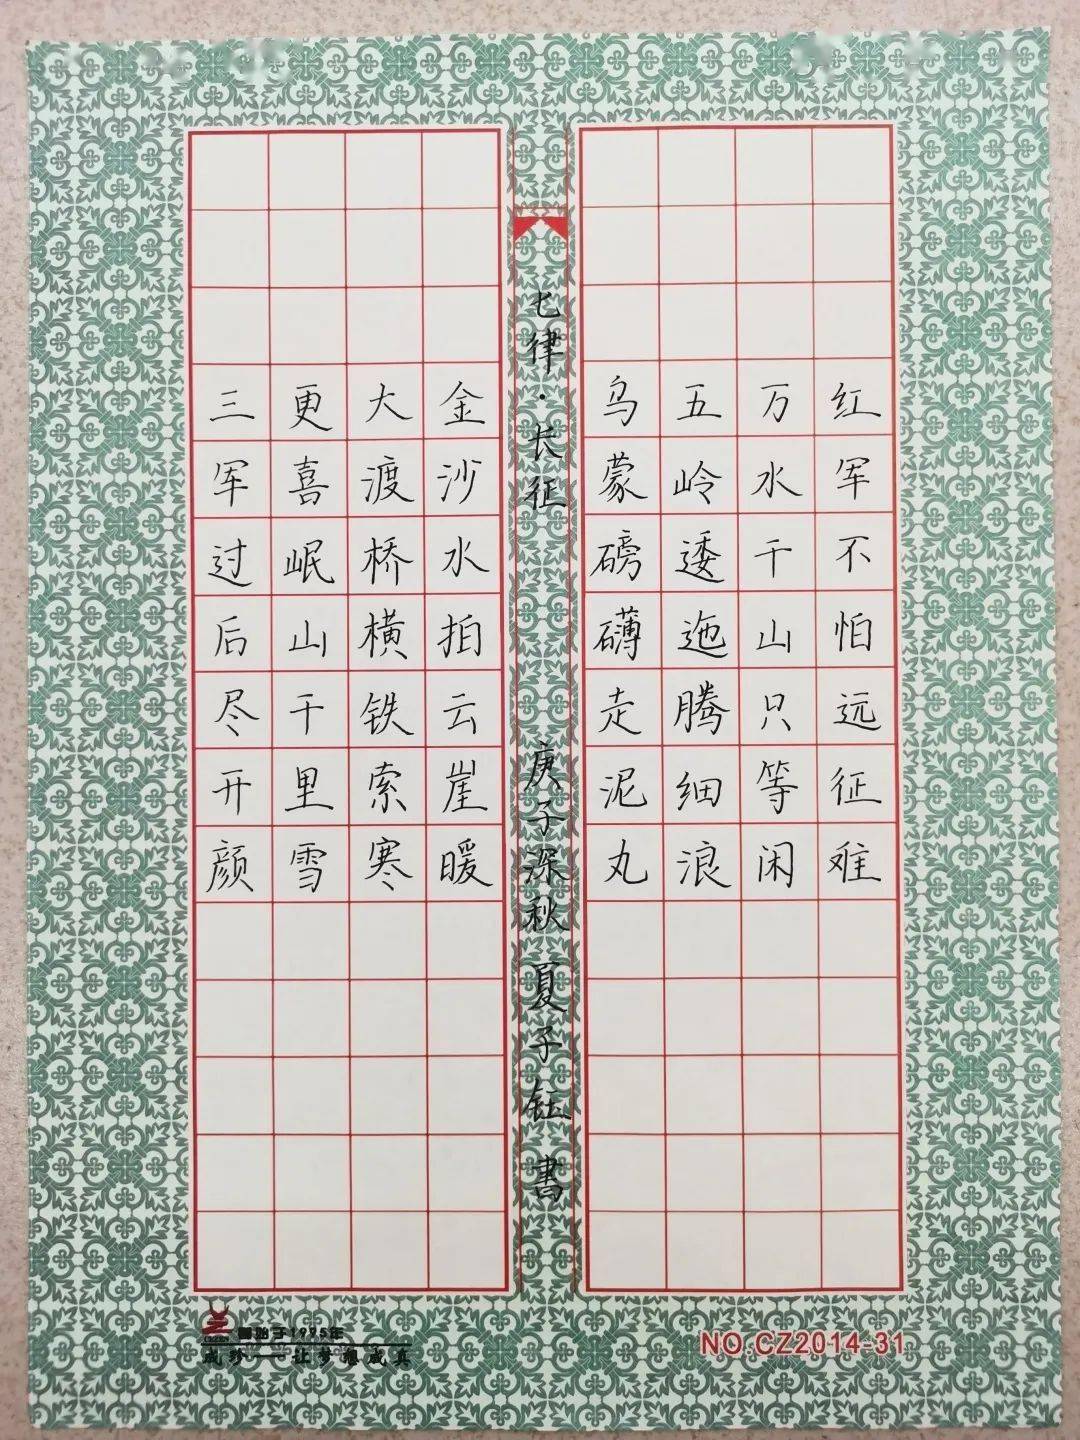 红军不怕远征难
万水千山只等闲
五岭逶迤腾细浪
乌蒙磅礴走泥丸
七律·长征
庚子深秋 夏子钰 書
金沙水拍云崖暖
大渡桥横铁索寒
更喜岷山千里雪
三军过后尽开颜
始于1995年
成珍——让梦想成真
NO.CZ2014-31